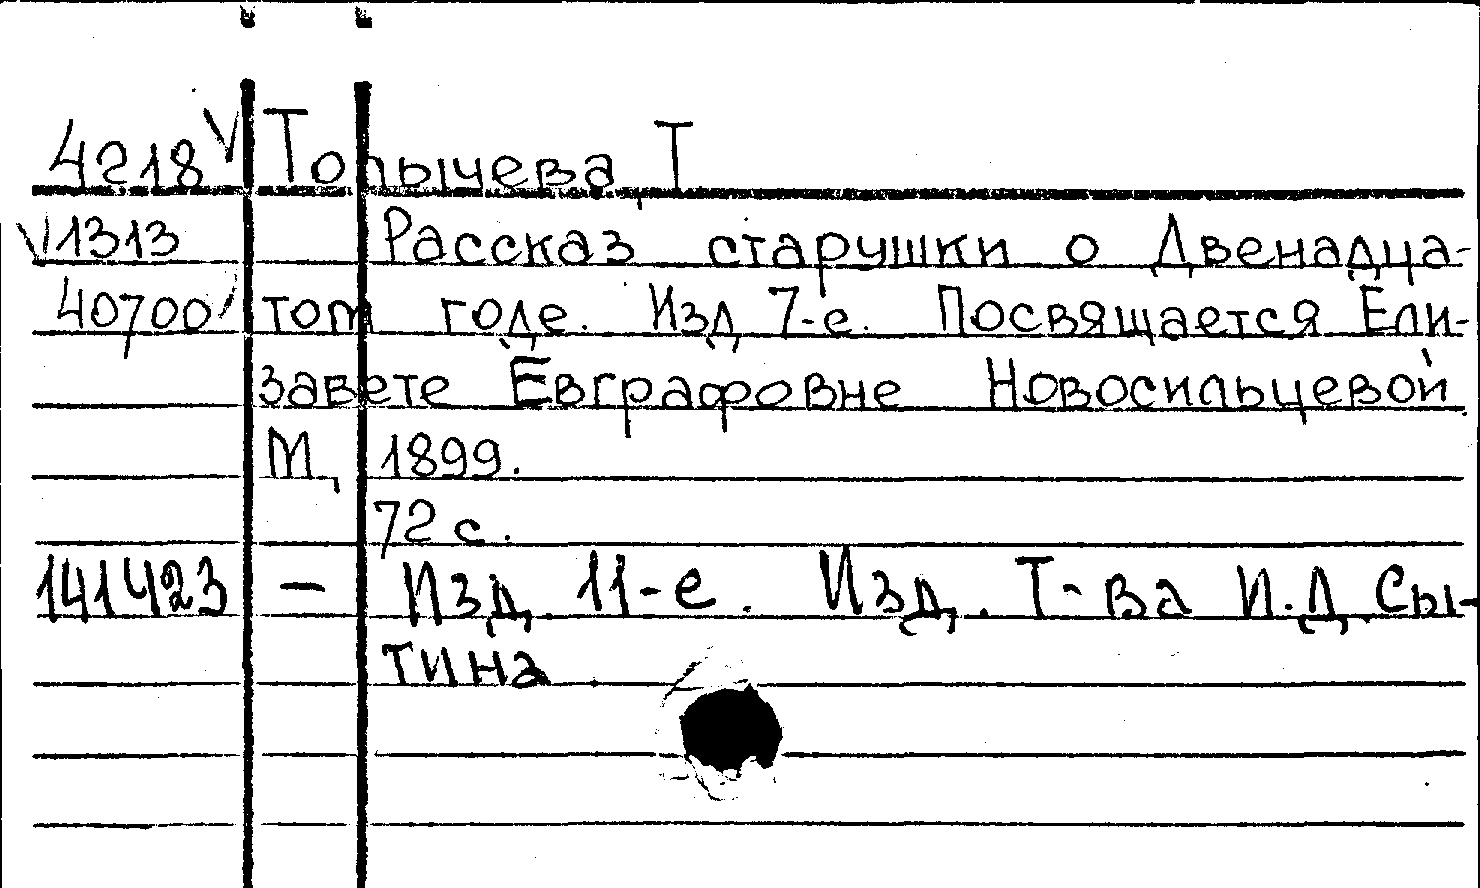 4218 V Толычева, Т
V 1313 Рассказ старушки о Двенадца-
40700 том годе. Изд 7-е. Посвящается Ели-
завете Евграфовне Новосильцевой.
М, 1899.
72 с.
141423 — Изд. 11-е. Изд. Т-ва И.Д. Сы-
тина